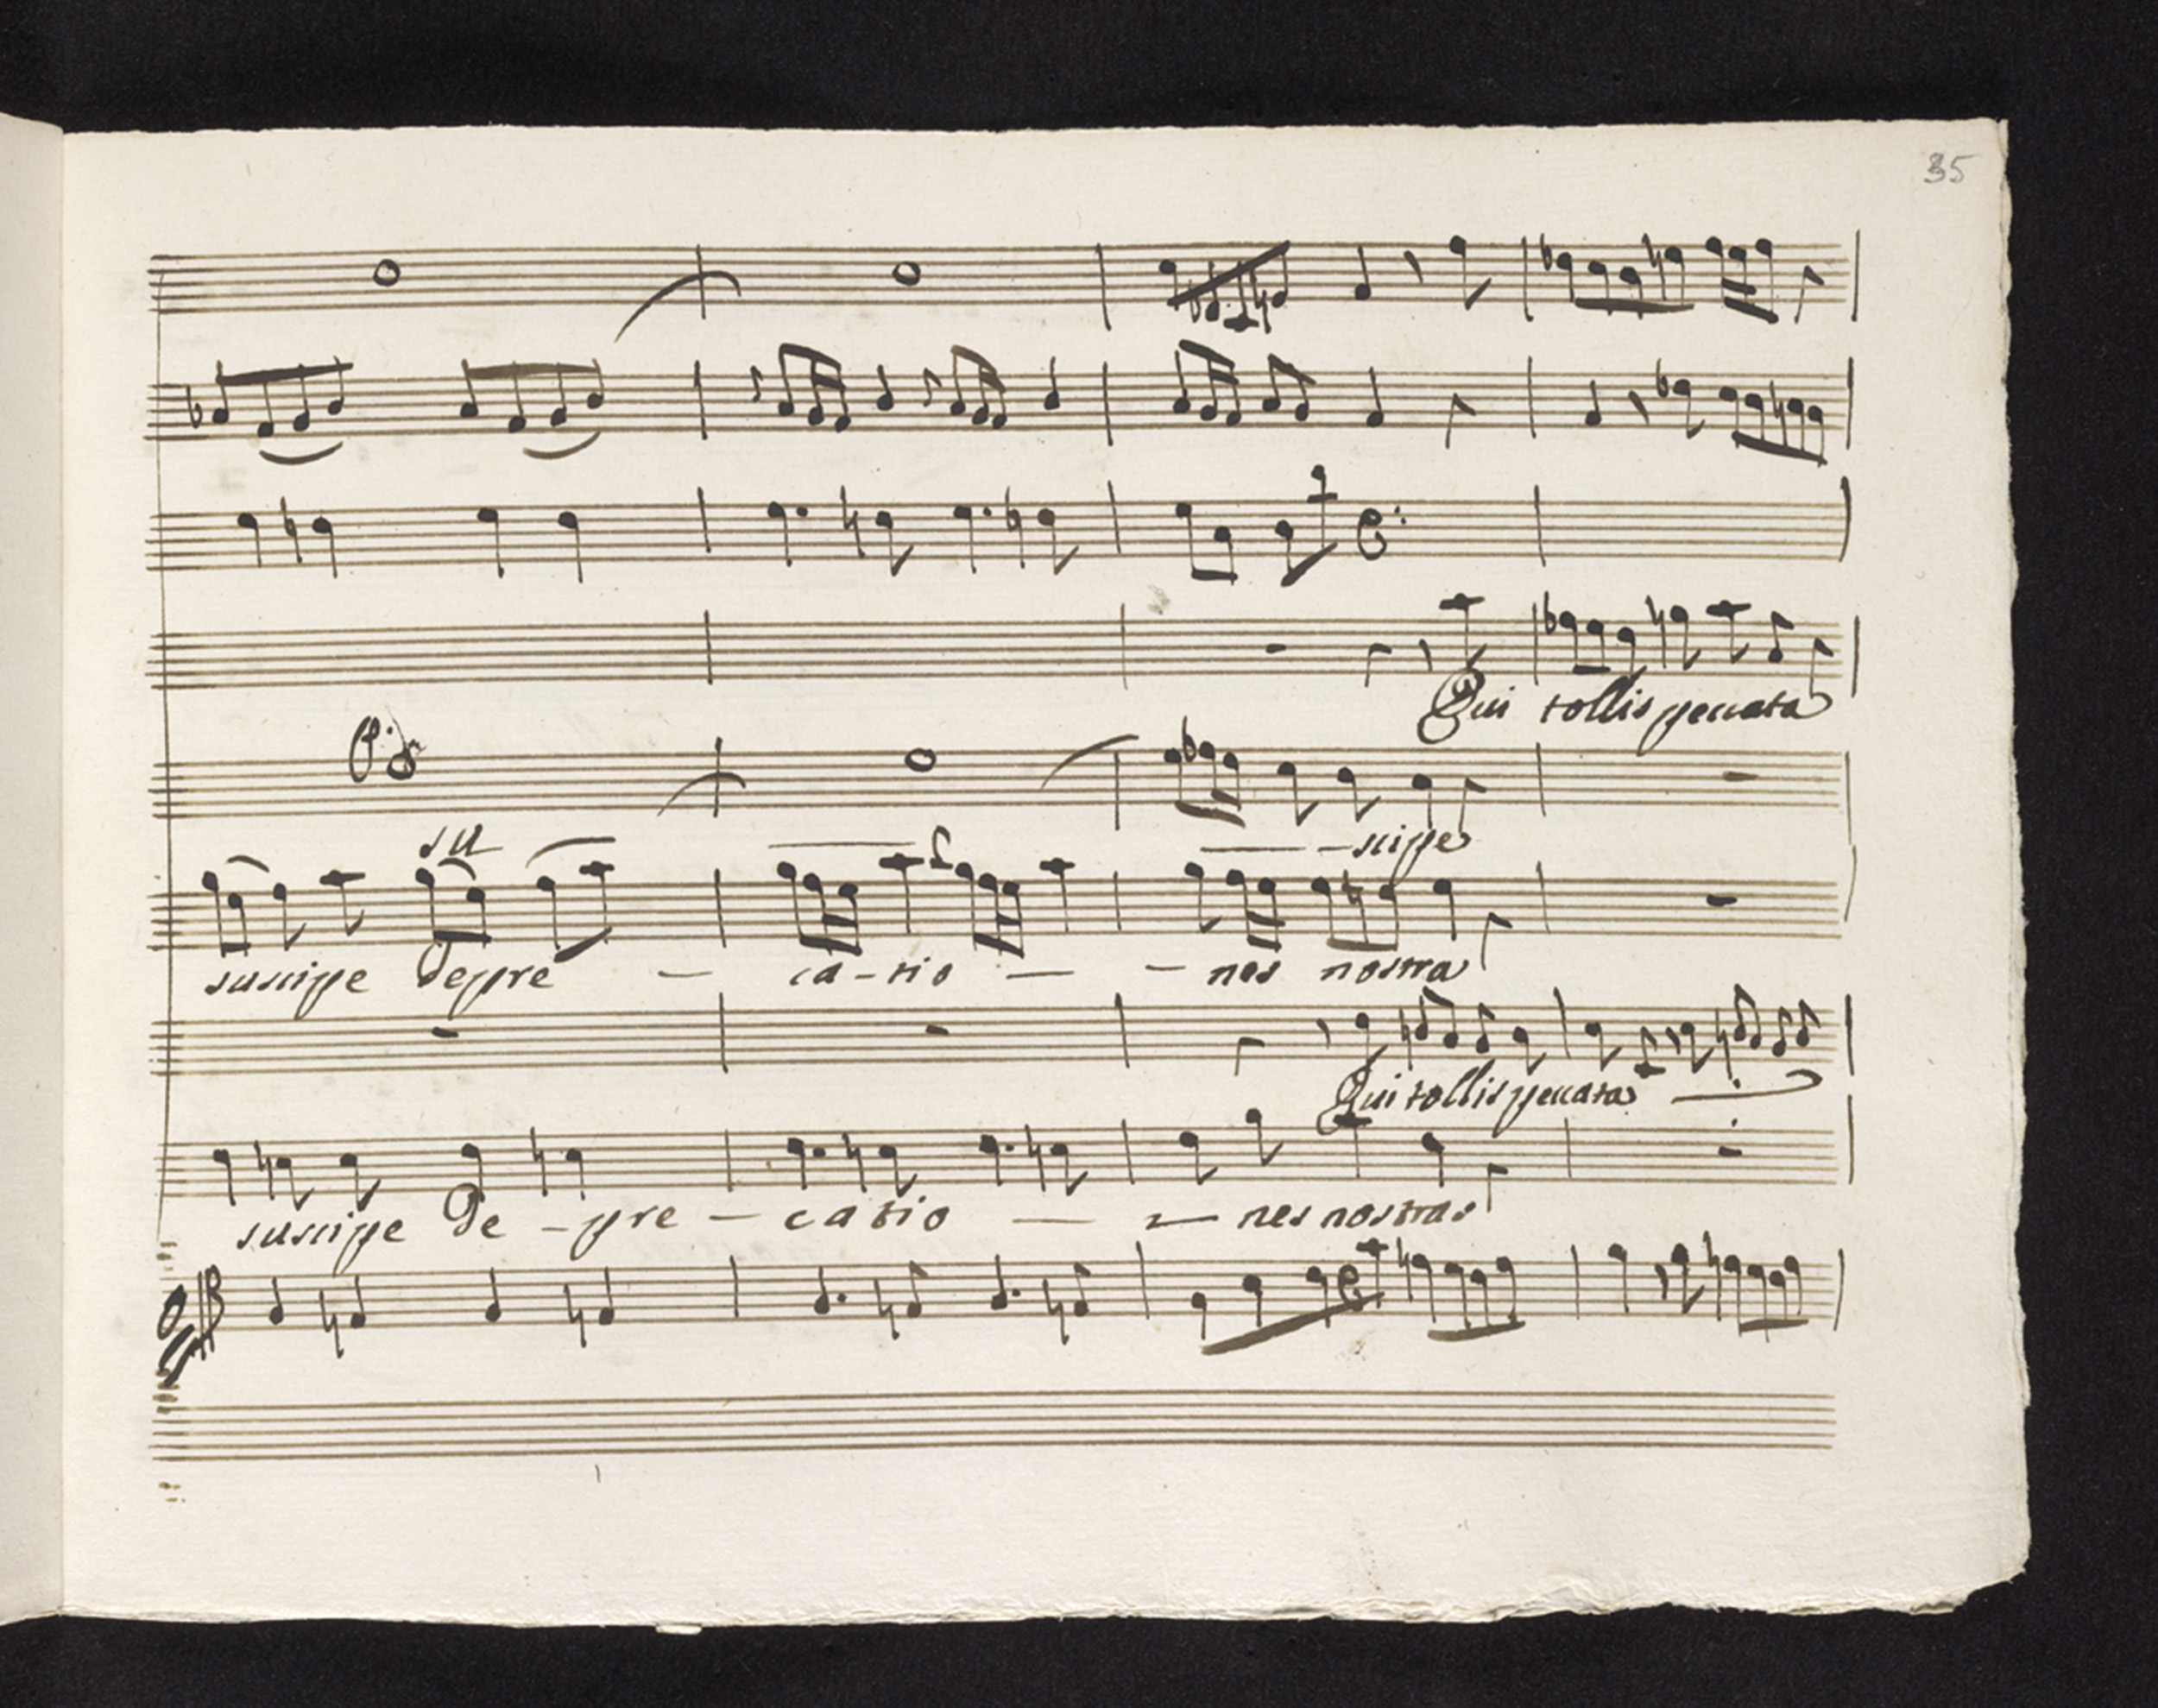 35
Qui tollis peccata
su - scipe
suscipe depre - ca - tio - - nes nostra
Qui tollis peccata
suscipe De - pre - catio - - nes nostras